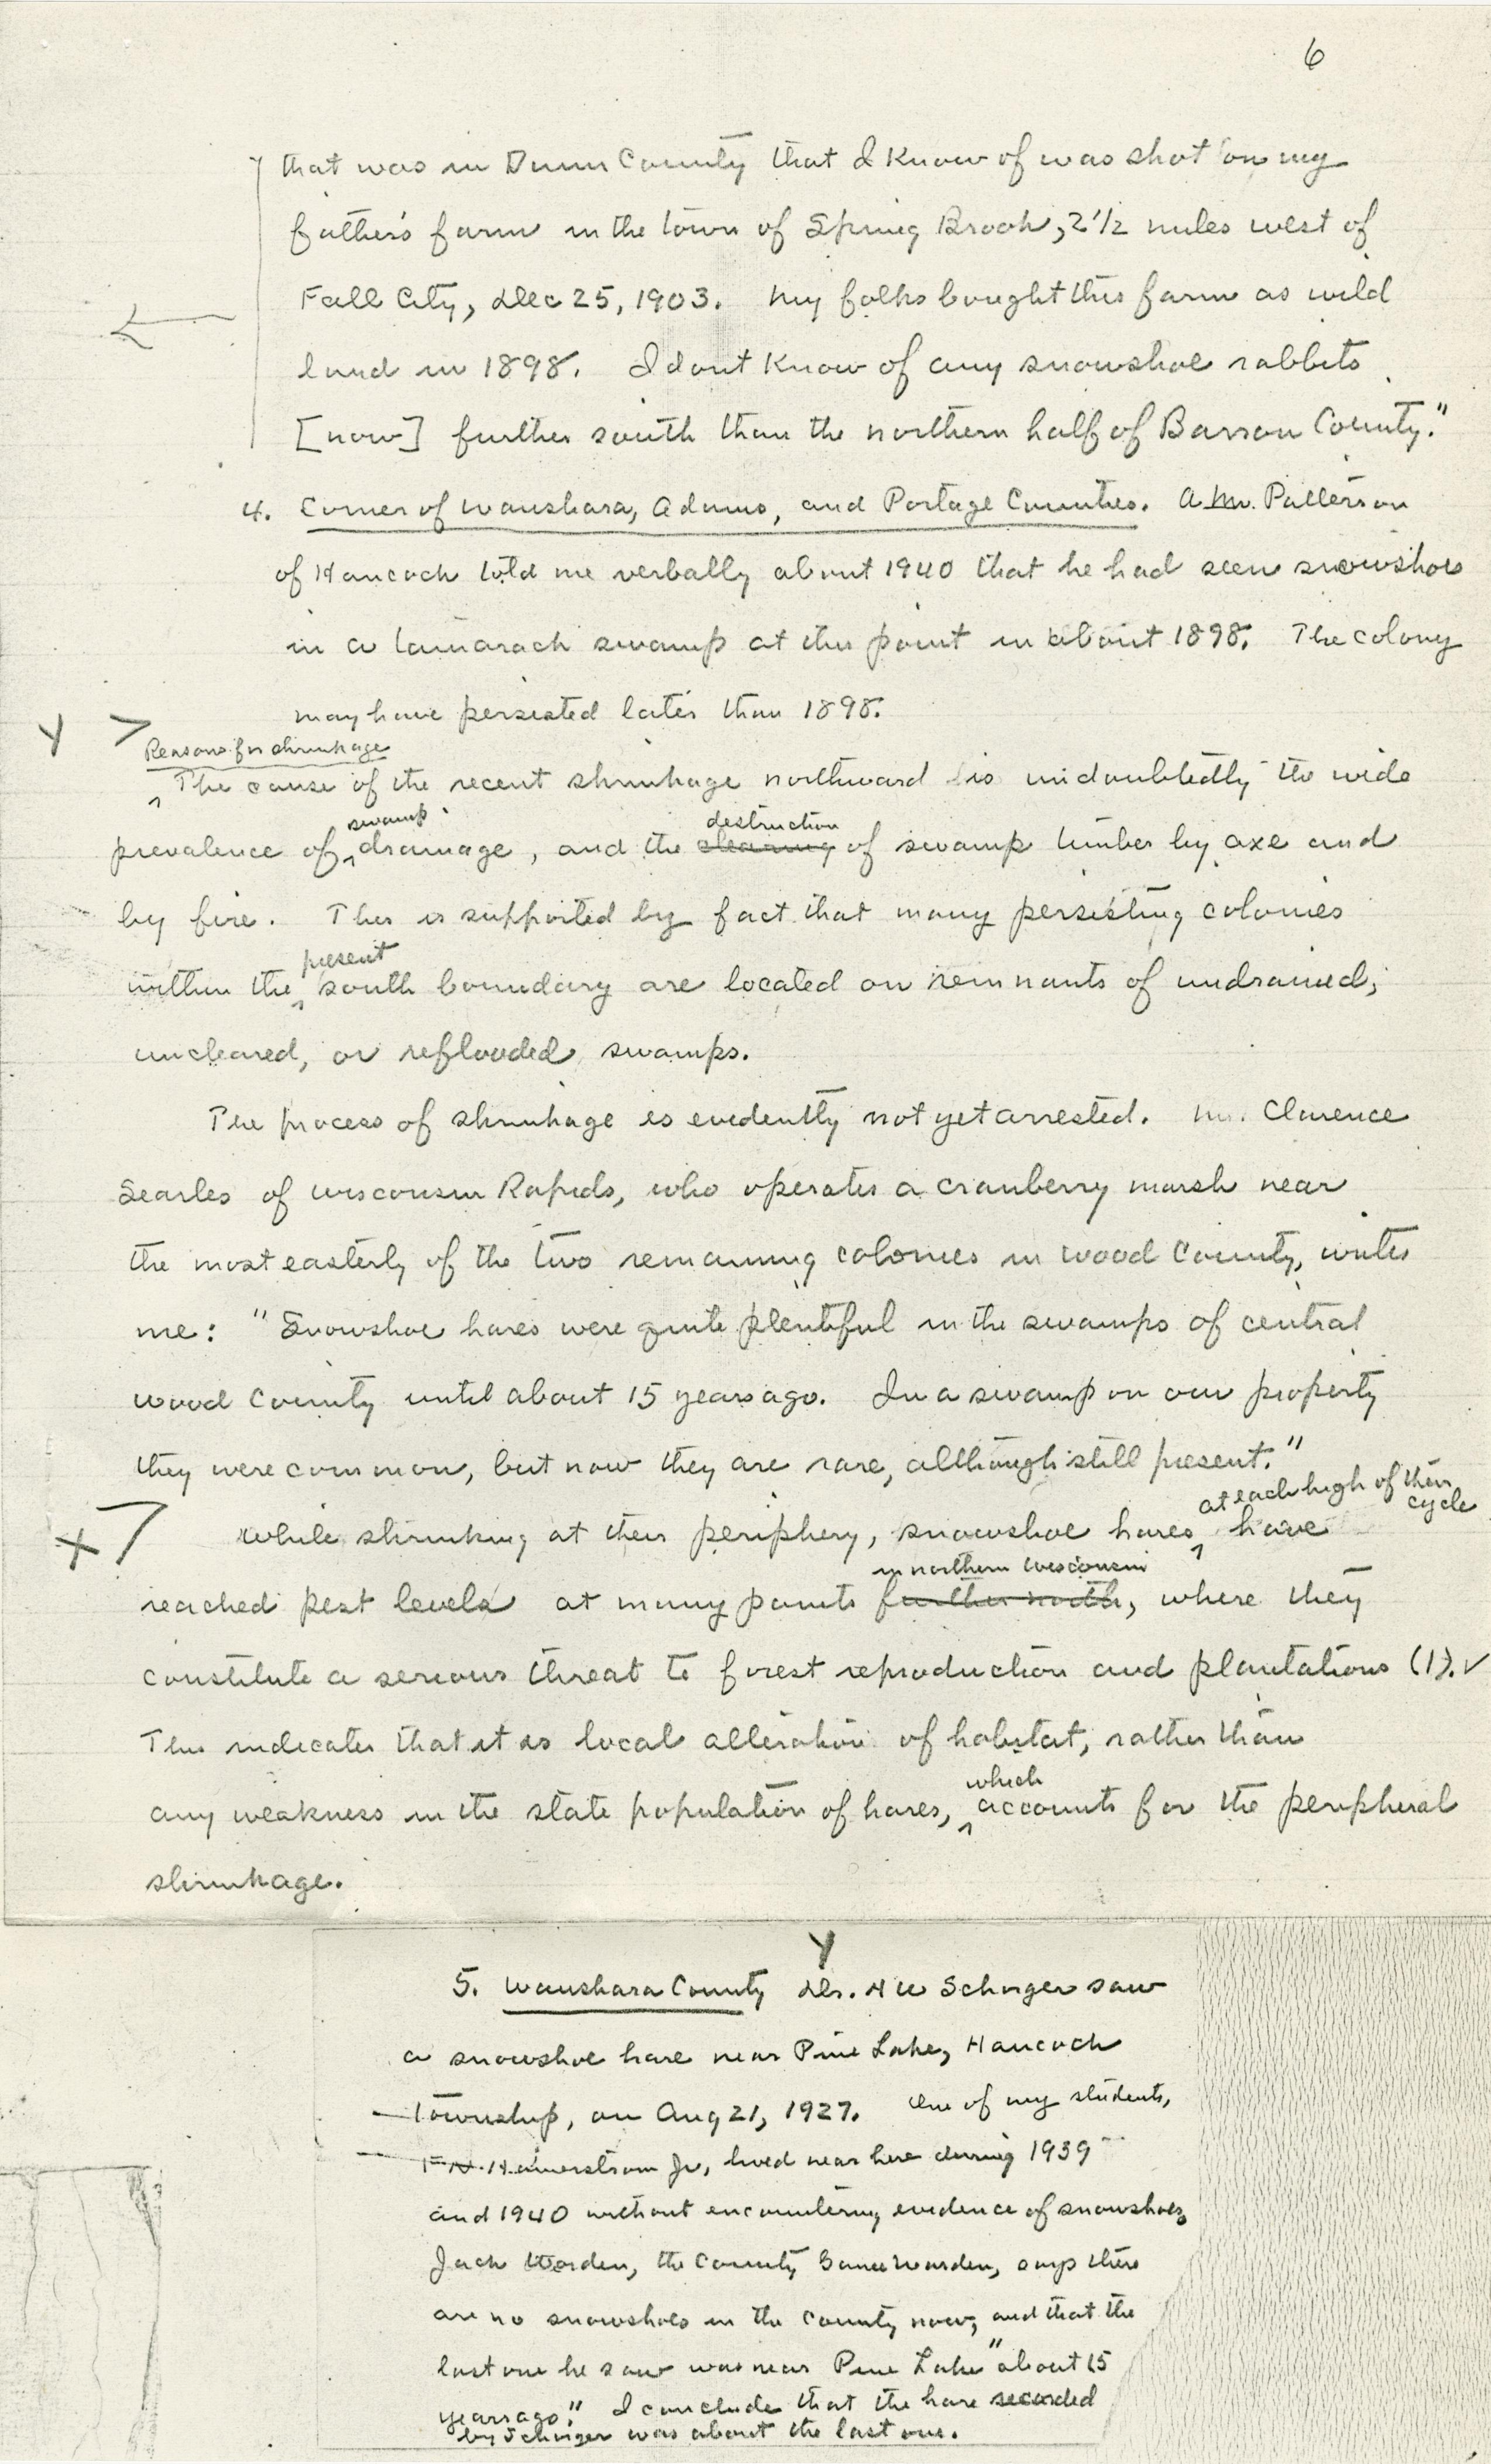 6
that was in Dunn County that I know of was shot on my
father's farm in the town of Spring Brook, 2 1/2 miles west of
Fall City, Dec 25, 1903. My folks bought this farm as wild
land in 1898. I dont know of any snowshoe rabbits
[now] further south than the northern half of Barron County."
4. Corner of Waushara, Adams, and Portage Counties. A.M. Patterson
of Hancock told me verbally about 1940 that he had seen snowshoes
in a tamarack swamp at this point in about 1898. The colony
may have persisted later than 1898.
Reasons for shrinkage
The cause of the recent shrinkage northward is undoubtedly the wide
swamp destruction
prevalence of drainage, and the clearing of swamp timber by axe and
by fire. This is supported by fact that many persisting colonies
present
within the south boundary are located on remnants of undrained,
uncleared, or reflooded swamps.
The process of shrinkage is evidently not yet arrested. Mr. Clarence
Searles of Wisconsin Rapids, who operates a cranberry marsh near
the most easterly of the two remaining colonies in Wood County, writes
me: "Snowshoe hares were quite plentiful in the swamps of central
Wood County until about 15 years ago. In a swamp on our property
they were common, but now they are rare, although still present."
at each high of their
cycle
While shrinking at their periphery, snowshoe hares have
in northern Wisconsin
reached pest levels at many points further north, where they
constitute a serious threat to forest reproduction and plantations (1).
This indicates that it is local alteration of habitat, rather than
which
any weakness in the state population of hares, accounts for the peripheral
shrinkage.
5. Waushara County Dr. A W Schorger saw
a snowshoe hare near Pine Lake, Hancock
Township, on Aug 21, 1927. One of my students,
F.N. Hamerstrom Jr, lived near here during 1939
and 1940 without encountering evidence of snowshoes.
Jack Worden, the County Game Warden, says there
are no snowshoes in the County now, and that the
last one he saw was near Pine Lake "about 15
years ago." I conclude that the hare recorded
by Schorger was about the last one.